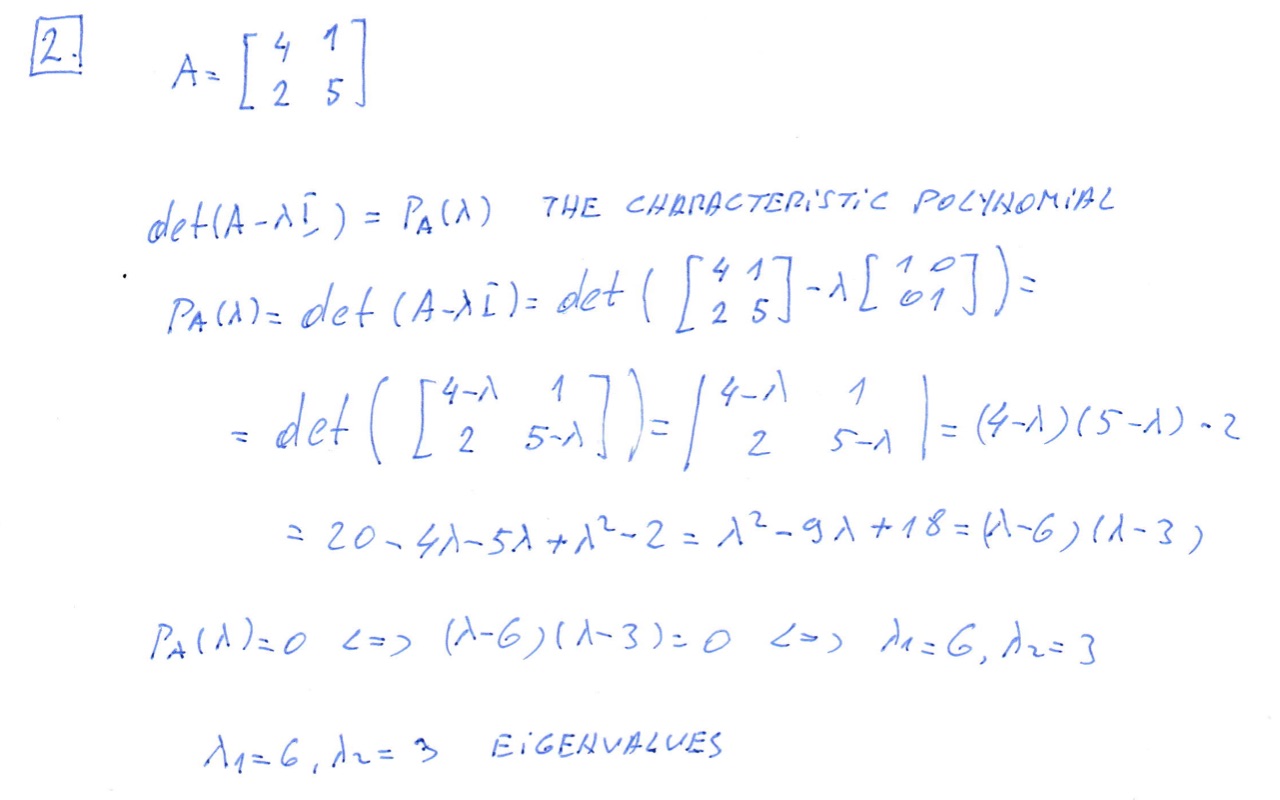 2.
A = [ 4 1
2 5 ]
det(A-λI) = P_A(λ) THE CHARACTERISTIC POLYNOMIAL
P_A(λ) = det (A-λI) = det ( [ 4 1 ; 2 5 ] - λ [ 1 0 ; 0 1 ] ) =
= det ( [ 4-λ 1 ; 2 5-λ ] ) = | 4-λ 1 ; 2 5-λ | = (4-λ)(5-λ) - 2
= 20 - 4λ - 5λ + λ² - 2 = λ² - 9λ + 18 = (λ-6)(λ-3)
P_A(λ) = 0 <=> (λ-6)(λ-3) = 0 <=> λ1 = 6, λ2 = 3
λ1 = 6, λ2 = 3 EIGENVALUES